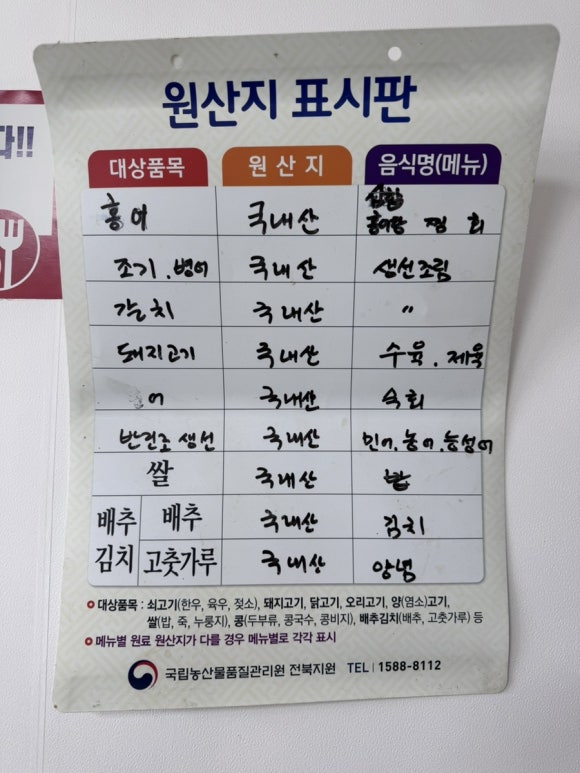 다!!
원산지 표시판
대상품목 원산지 음식명(메뉴)
홍어 국내산 삼합 홍어탕 찜 회
조기.병어 국내산 생선조림
갈치 국내산 〃
돼지고기 국내산 수육.제육
어 국내산 숙회
반건조 생선 국내산 민어.농어.농성어
쌀 국내산 밥
배추 배추 국내산 김치
김치 고춧가루 국내산 양념
대상품목 : 쇠고기(한우, 육우, 젖소), 돼지고기, 닭고기, 오리고기, 양(염소)고기,
쌀(밥, 죽, 누룽지), 콩(두부류, 콩국수, 콩비지), 배추김치(배추, 고춧가루) 등
메뉴별 원료 원산지가 다를 경우 메뉴별로 각각 표시
국립농산물품질관리원 전북지원 TEL | 1588-8112